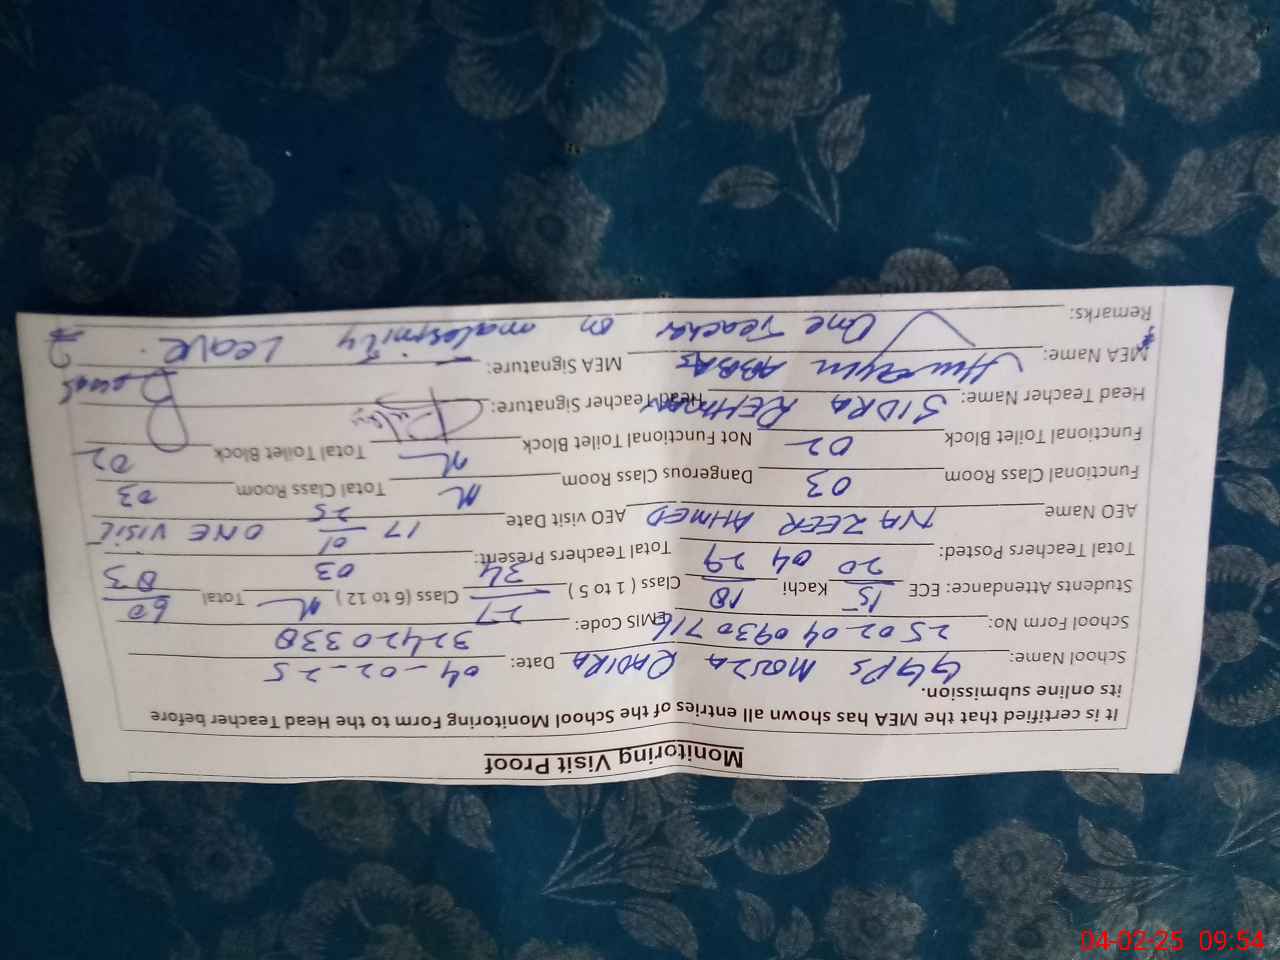 Monitoring Visit Proof
It is certified that the MEA has shown all entries of the School Monitoring Form to the Head Teacher before
its online submission.
School Name: GGPS MOUZA RADIRA Date: 04-02-25
School Form No: 2502040930716 EMIS Code: 32420330
Students Attendance: ECE 15/20 Kachi 18/29 Class ( 1 to 5 ) 27/34 Class (6 to 12 ) N Total 60/83
Total Teachers Posted: 04 Total Teachers Present: 03
AEO Name NAZEER AHMED AEO visit Date 17/01/25 ONE VISIT
Functional Class Room 03 Dangerous Class Room N Total Class Room 03
Functional Toilet Block 02 Not Functional Toilet Block N Total Toilet Block 02
Head Teacher Name: SIDRA REHMAN Head Teacher Signature:
MEA Name: ABBAS MEA Signature:
Remarks: One Teacher on maternity Leave.
04-02-25 09:54